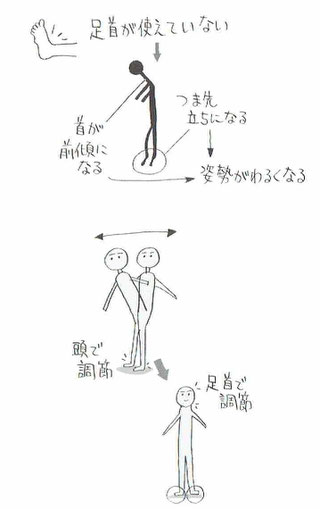 足首が使えていない
つま先
立ちになる
首が
前傾に
なる
姿勢がわるくなる
頭で
調節
足首で
調節